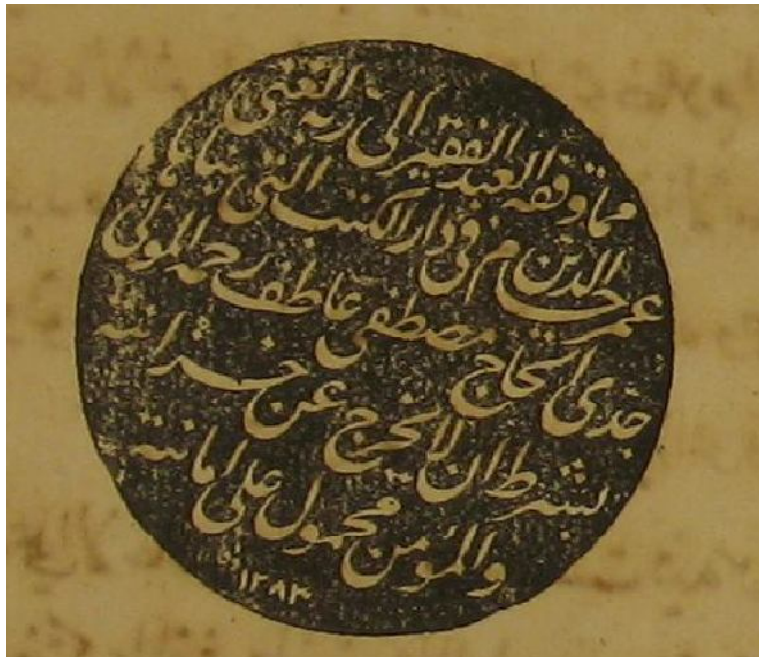 مما وقفه العبد الفقير الى ربه الغنى
عمر حسام الدين فى دار الكتب التى بناها
جدى الحاج مصطفى عاطف رحمه المولى
بشرط ان لا يخرج عن خزانته
والمؤمن محمول على امانته
١٢٨٣